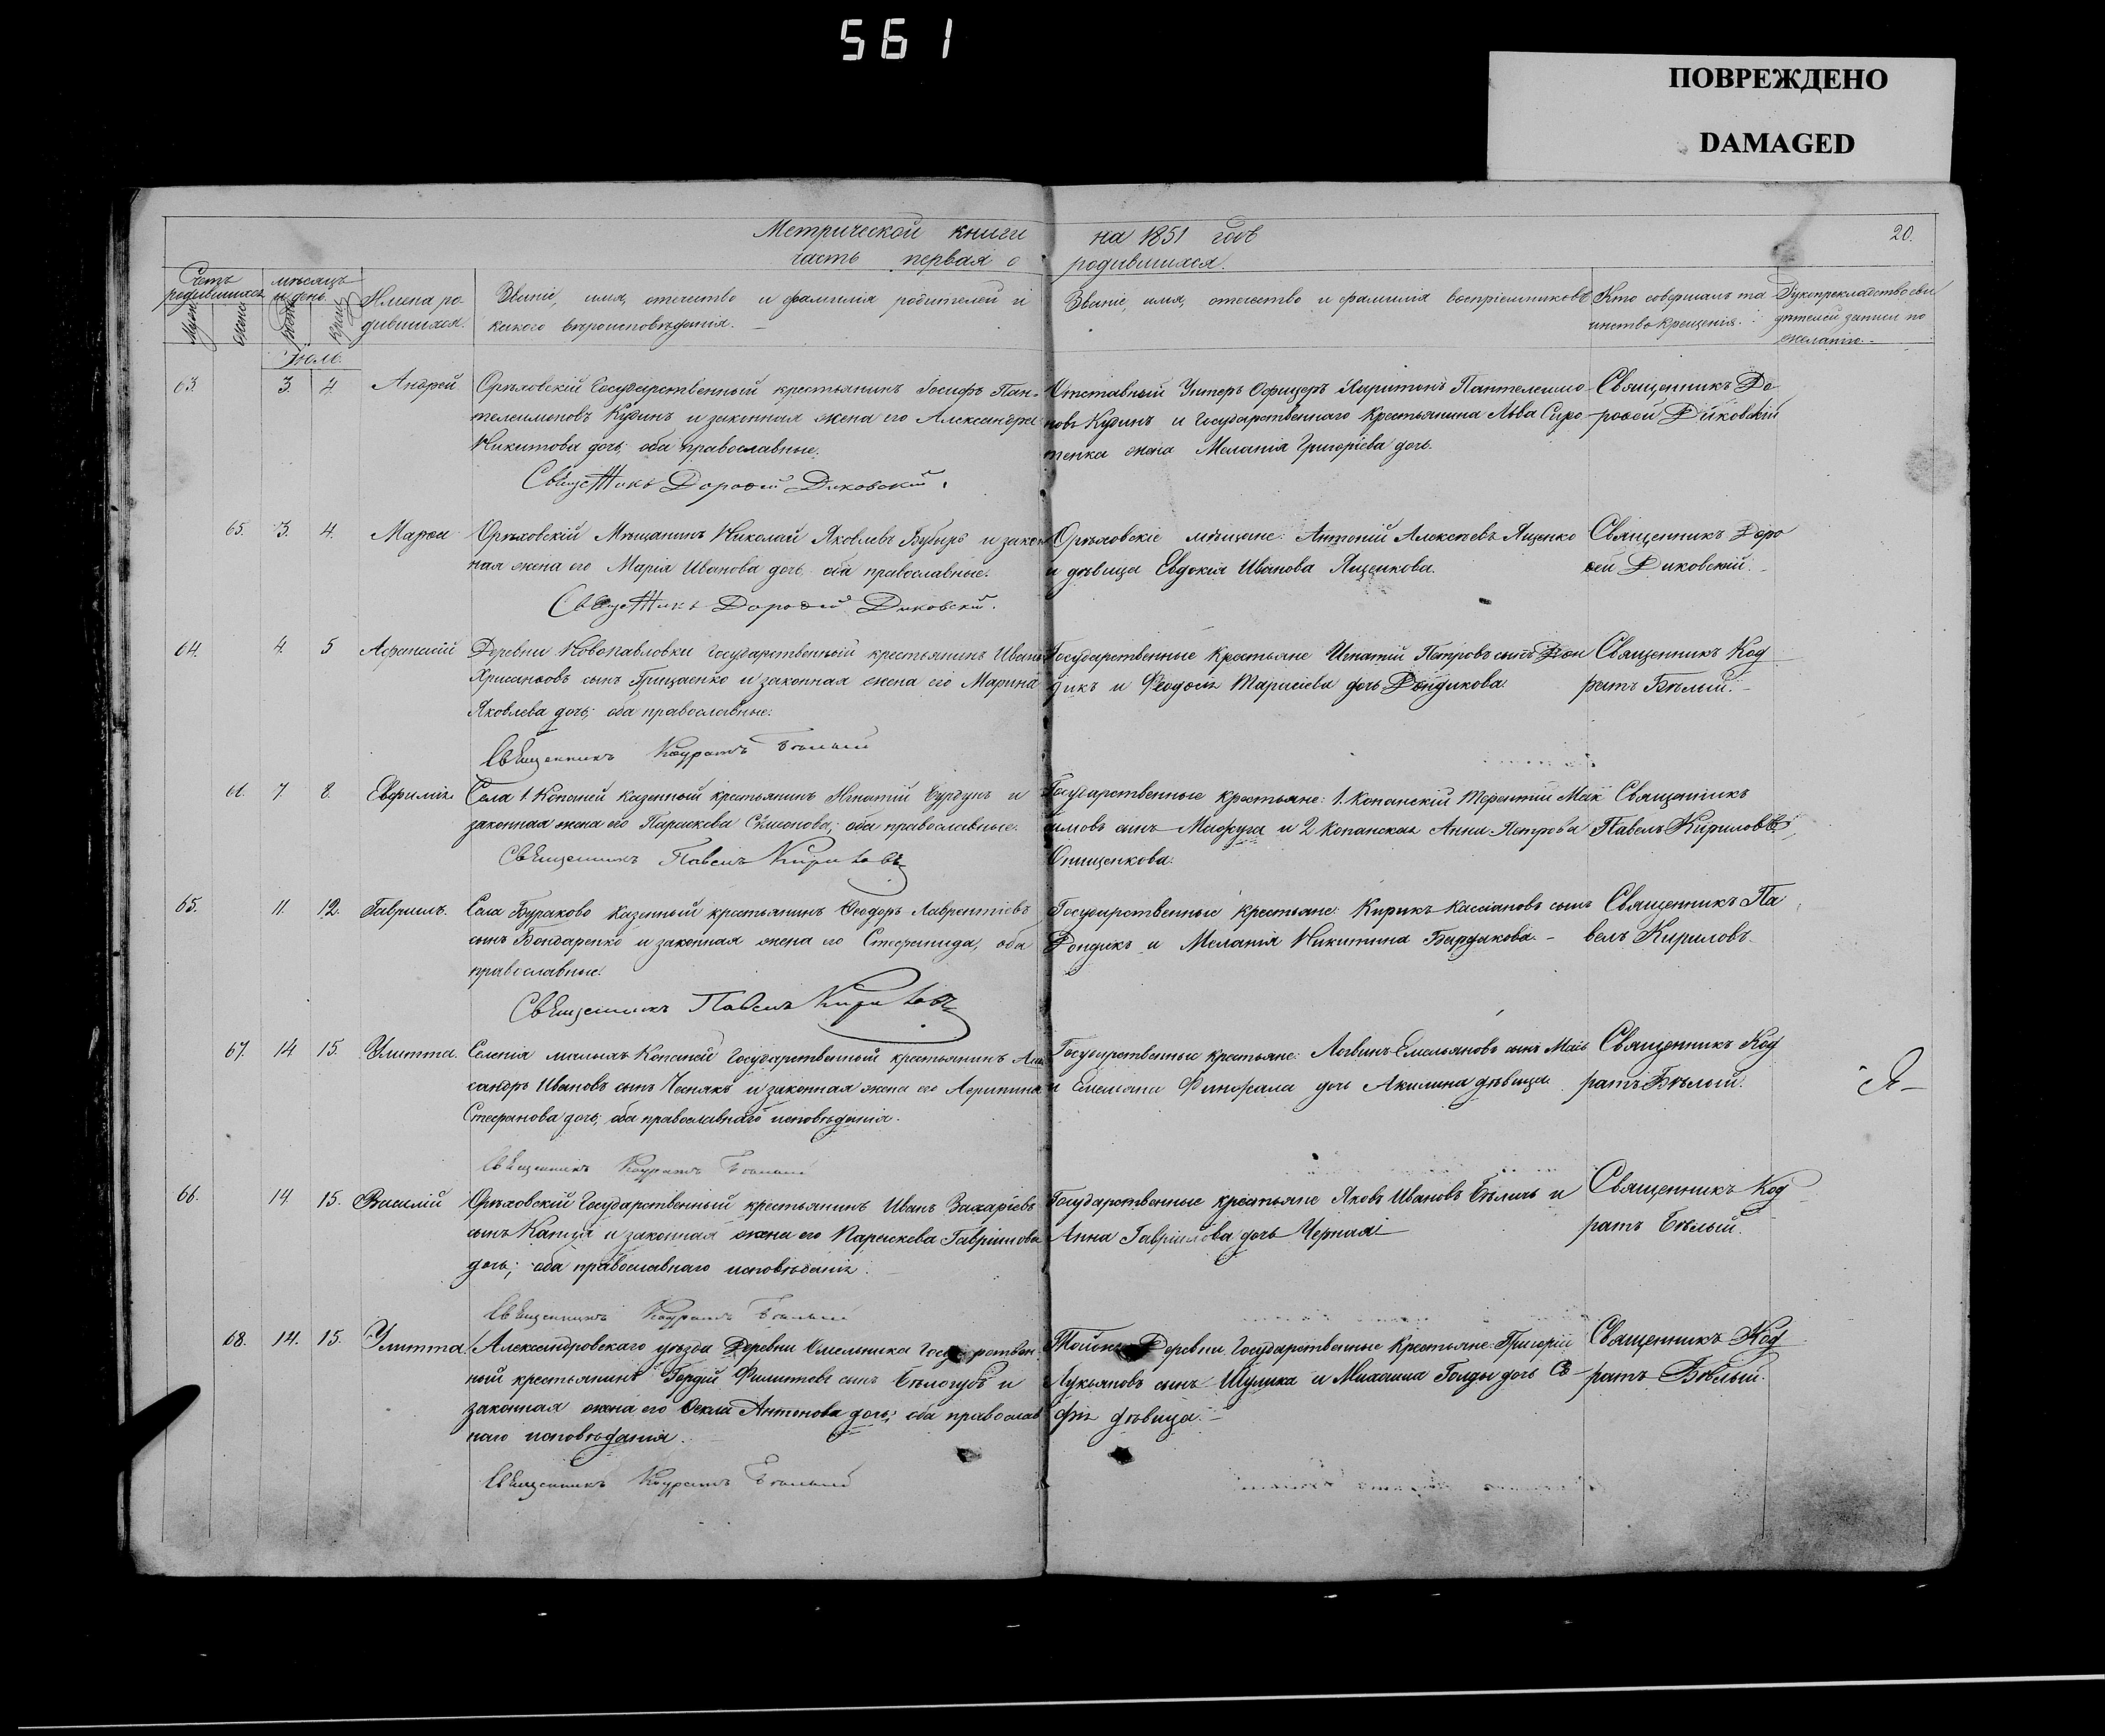 561
ПОВРЕЖДЕНО
DAMAGED
Метрической книги на 1851 годъ
часть первая о родившихся.
20.
Счетъ родившихся
мѣсяцъ и день.
Имена родившихся.
Званіе, имя, отечество и фамилія родителей и
какого вѣроисповѣданія.
Званіе, имя, отечество и фамилія воспріемниковъ
Кто совершалъ та
инство крещенія.
Рукоприкладство сви
дѣтелей записи по
желанію.
Іюль.
63. 3. 4. Андрей
Орѣховскій Государственный крестьянинъ Іосифъ Пан-
телеимоновъ Кудинъ и законная жена его Александра
Никитова дочь, оба православные.
Священникъ Дорофей Диковскій.
Отставный Унтеръ Офицеръ Харитонъ Пантелеимо
новъ Кудинъ и Государственнаго Крестьянина Льва Сиро
тенка жена Меланія Григоріева дочь.
Священникъ До
рофей Диковскій
65. 3. 4. Марѳа
Орѣховскій Мѣщанинъ Николай Яковлевъ Бубырь и закон
ная жена его Марія Иванова дочь оба православные.
Священникъ Дорофей Диковскій.
Орѣховскіе мѣщане: Антоній Алексѣевъ Яценко
и дѣвица Евдокія Иванова Яценкова.
Священникъ Доро
ѳей Диковскій.
64. 4. 5 Афанасій
Деревни Новопавловки Государственный крестьянинъ Иванъ
сынъ Грицаенко и законная жена его Марина
Яковлева дочь; оба православные.
Священникъ Кодратъ Бѣлый
Государственные Крестьяне Игнатій Петровъ сынъ Дон
дикъ и Феодосія Тарасіева дочь Дондикова.
Священникъ Код
ратъ Бѣлый.
61. 7. 8. Евфимія
Села 1. Копаней казенный крестьянинъ Игнатій Бурдунъ и
законная жена его Параскева Симонова; оба православные.
Священникъ Павелъ Кириловъ
Государственные крестьяне: 1. Копанскій Терентій Мак
симовъ сынъ Мафуга и 2 Копанская Анна Петрова
Онищенкова.
Священникъ
Павелъ Кириловъ
65. 11. 12. Гавріилъ.
Села Бураково казенный крестьянинъ Ѳеодоръ Лаврентіевъ
сынъ Бондаренко и законная жена его Стефанида, оба
православные.
Священникъ Павелъ Кириловъ
Государственные крестьяне: Кирикъ Кассіановъ сынъ
Дондикъ и Меланія Никитина Бардакова.
Священникъ Па
велъ Кириловъ.
67. 14 15. Улитта.
Селенія малыхъ Копаней Государственный крестьянинъ Але
ксандръ Ивановъ сынъ Чеснякъ и законная жена его Агрипина
Стефанова дочь, оба православнаго исповѣданія.
Священникъ Кодратъ Бѣлый
Государственные крестьяне: Логвинъ Емельяновъ сынъ
и дочь Акилина дѣвица.
Священникъ Код
ратъ Бѣлый.
66. 14. 15. Василій
Орѣховскій Государственный крестьянинъ Иванъ Захаріевъ
сынъ Капця и законная жена его Параскева Гавріилова
дочь; оба православнаго исповѣданія.
Священникъ Кодратъ Бѣлый
Государственные крестьяне Яковъ Ивановъ Бѣличъ и
Анна Гавріилова дочь Черная
Священникъ Код
ратъ Бѣлый.
68. 14. 15. Улитта
Александровскаго уѣзда Деревни Омельника Государствен
ный крестьянинъ Гордій Филиповъ сынъ Бѣлогубъ и
законная жена его Ѳекла Антонова дочь; оба православ
наго исповѣданія.
Священникъ Кодратъ Бѣлый
Деревни Государственные Крестьяне Григорій
Лукьяновъ сынъ Шулика и Михаила Голды дочь Со
фія дѣвица.
Священникъ Код
ратъ Бѣлый.